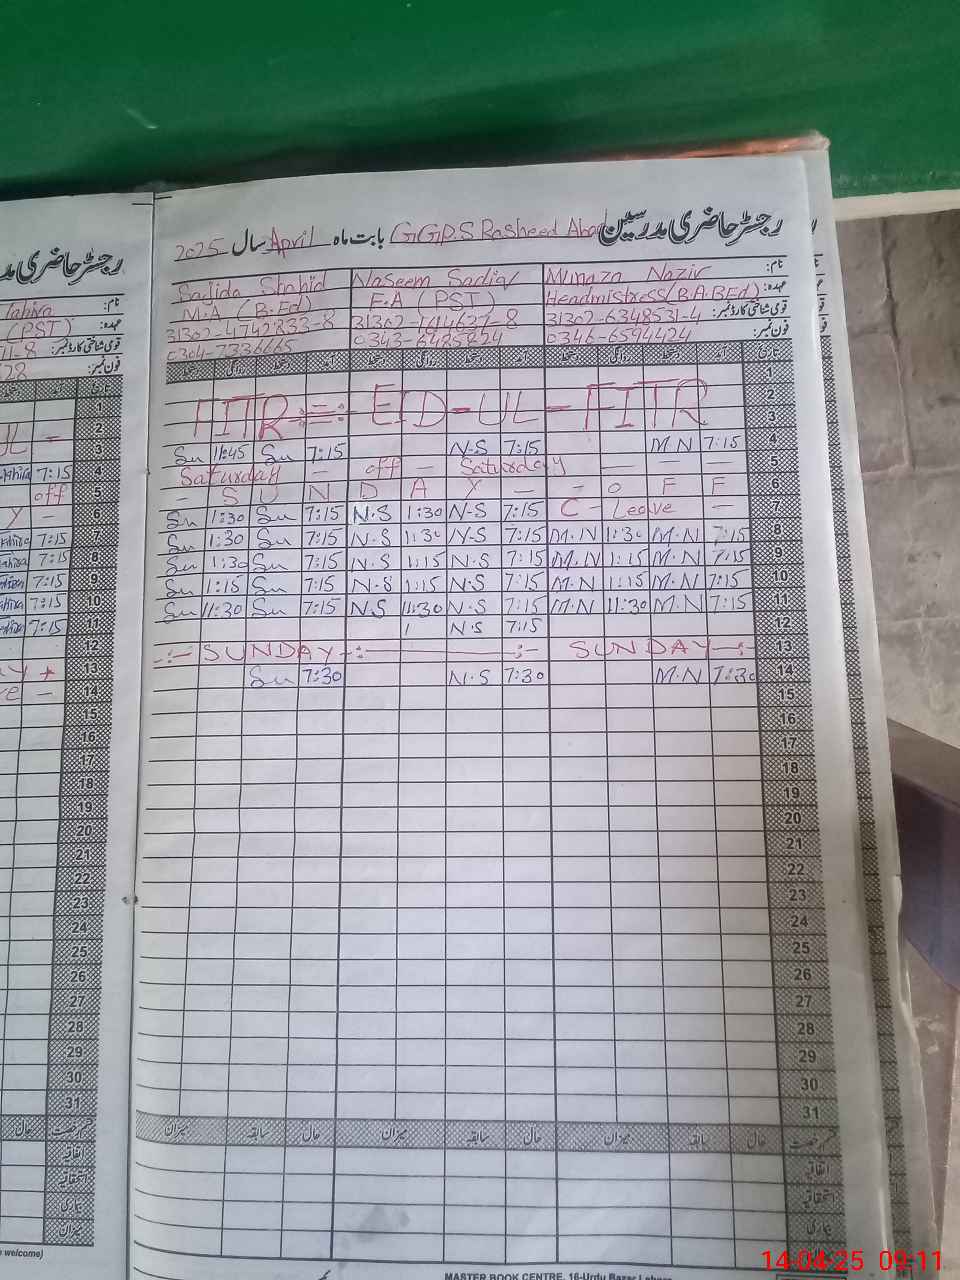 رجسٹر حاضری مدرسین GGP.S Rasheed Abad بابت ماہ April سال 2025
نام: Munaza Nazir Naseem Sadiq Sajida Shahid
عہدہ: Headmistress (B.A.B.Ed) F.A (PST) M.A (B.Ed)
قومی شناختی کارڈ نمبر: 31302-6348531-4 31302-4742833-8
فون نمبر: 0346-6594424 0343-6485824 0304-7336665
تاریخ آمد دستخط روانگی دستخط آمد دستخط روانگی دستخط آمد دستخط روانگی دستخط
1
2
FITR EID-UL-FITR
3
Su 11:45 Su 7:15 N-S 7:15 M.N 7:15 4
Saturday - off - Saturday - - - 5
- S U N D A Y - - O F F 6
Su 1:30 Su 7:15 N.S 1:30 N-S 7:15 C - Leave - 7
Su 1:30 Su 7:15 N.S 1:30 N-S 7:15 M.N 1:30 M.N 7:15 8
Su 1:30 Su 7:15 N.S 1:15 N.S 7:15 M.N 1:15 M.N 7:15 9
Su 1:15 Su 7:15 N-S 1:15 N.S 7:15 M-N 1:15 M.N 7:15 10
Su 11:30 Su 7:15 N.S 11:30 N-S 7:15 M.N 11:30 M.N 7:15 11
N.S 7:15 12
SUNDAY SUNDAY 13
Su 7:30 N.S 7:30 M.N 7:30 14
15
16
17
18
19
20
21
22
23
24
25
26
27
28
29
30
31
میزان سابقہ حال میزان سابقہ حال میزان سابقہ حال قسم رخصت
اتفاقیہ
استحقاقیہ
بیماری
میزان
MASTER BOOK CENTRE, 16-Urdu Bazar Lahore
رجسٹر حاضری مد
نام: Tahira
عہدہ: (PST)
قومی شناختی کارڈ نمبر: 71-8
فون نمبر: 28
تاریخ آمد
1
UL - 2
3
7:15 4
off 5
Y - 6
Tahira 7:15 7
Tahira 7:15 8
Tahira 7:15 9
Tahira 7:15 10
Tahira 7:15 11
12
AY 13
ve - 14
15
16
17
18
19
20
21
22
23
24
25
26
27
28
29
30
31
حال قسم رخصت
اتفاقیہ
استحقاقیہ
بیماری
میزان
welcome)
14-04-25 09:11